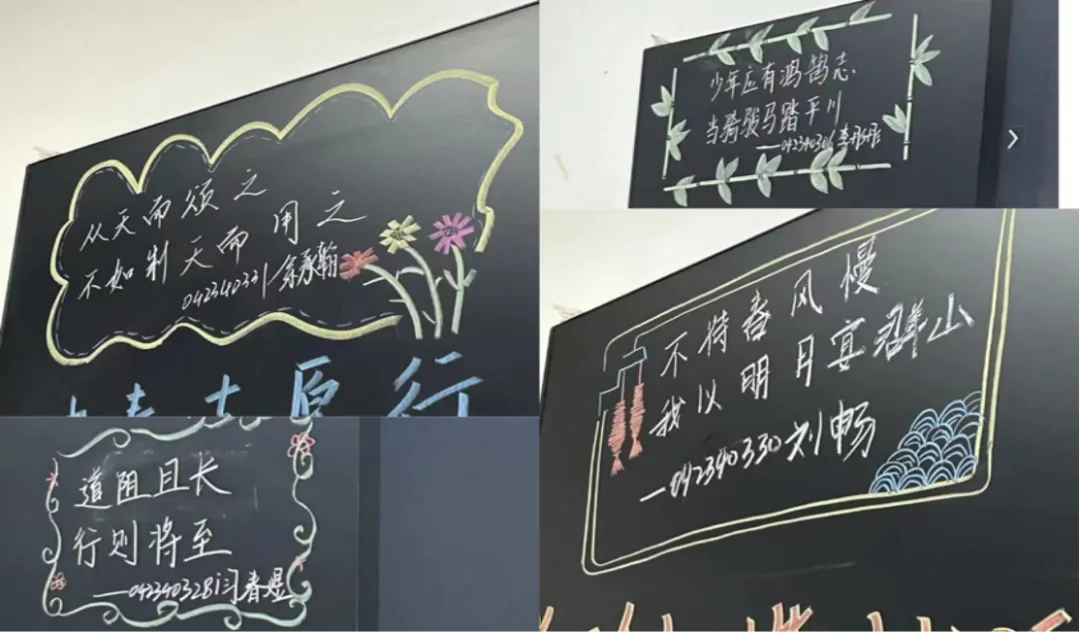 从天而颂之
不如制天而用之
042340331余承翰
原行
少年应有鸿鹄志
当骑骏马踏平川
——042340306
道阻且长
行则将至
——042340328闫春煜
不待春风慢
我以明月宴群山
——042340330刘畅